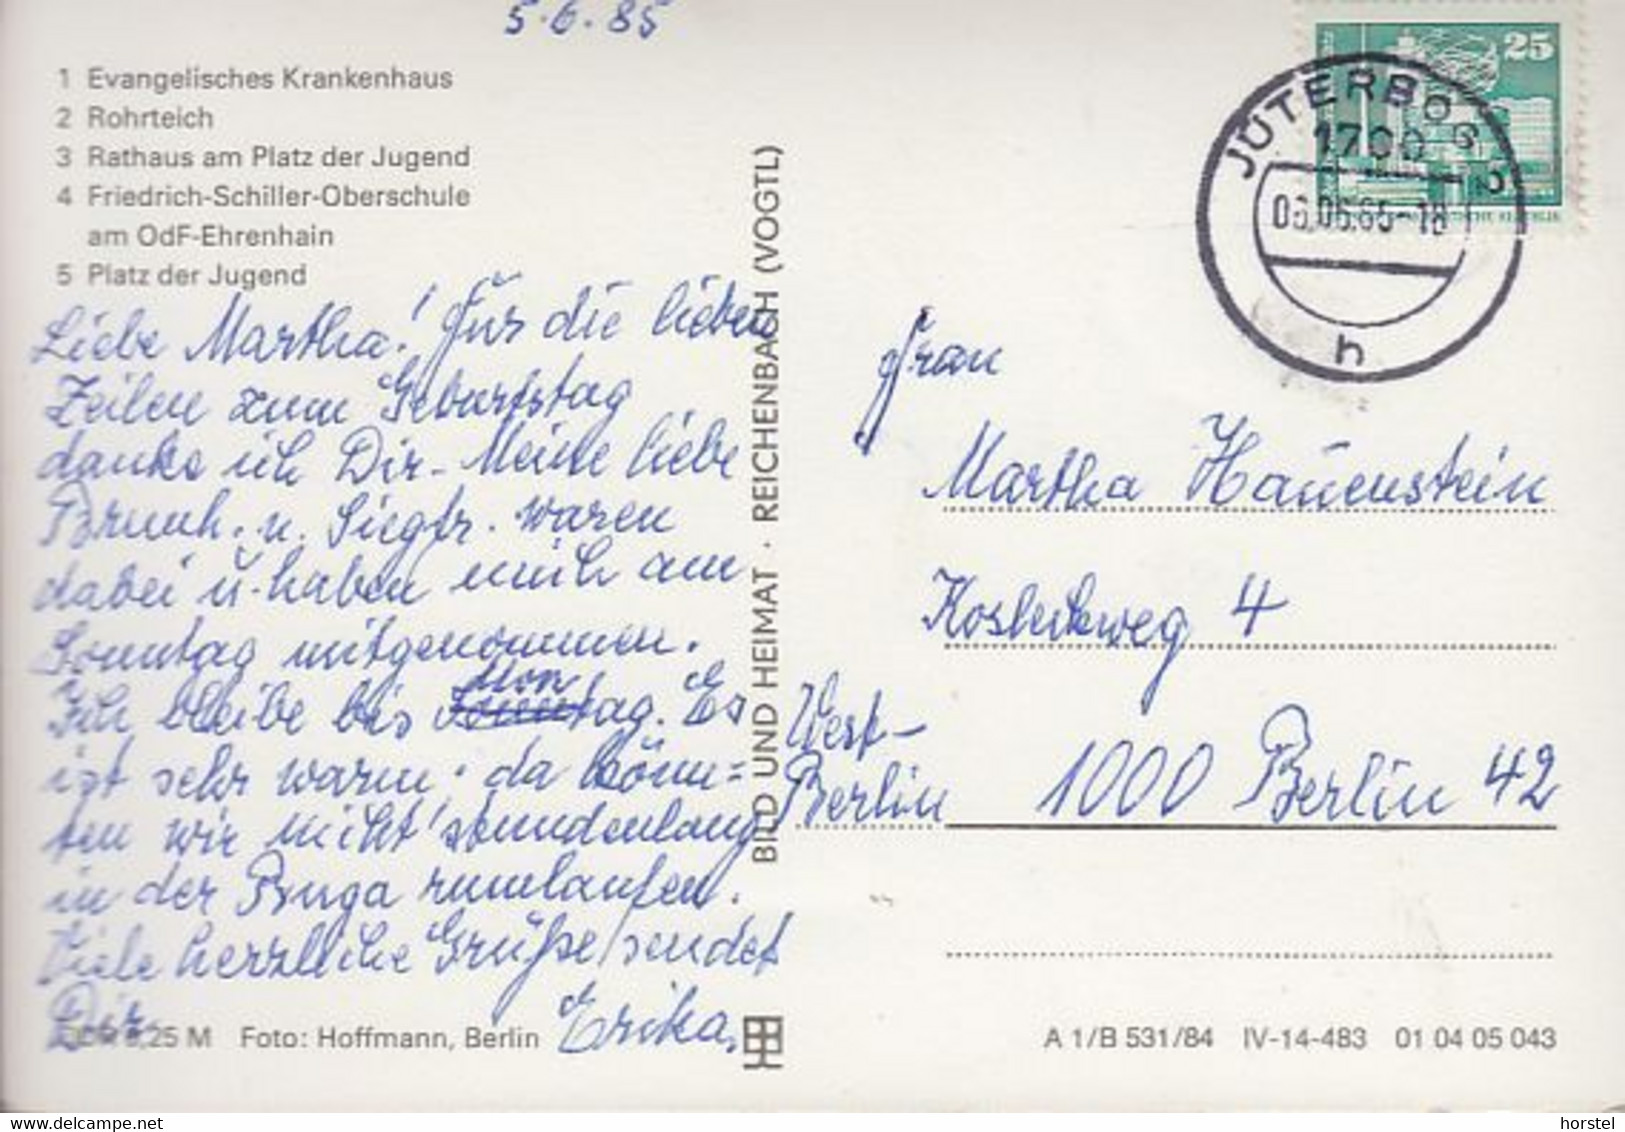 5.6.85
1 Evangelisches Krankenhaus
2 Rohrteich
3 Rathaus am Platz der Jugend
4 Friedrich-Schiller-Oberschule
am OdF-Ehrenhain
5 Platz der Jugend
Liebe Martha! Für die lieben
Zeilen zum Geburtstag
danke ich Dir. Meine liebe
Brunh. u. Siegfr. waren
dabei u. haben mich am
Sonntag mitgenommen.
Ich bleibe bis Montag. Es
ist sehr warm. da könn=
ten wir nicht stundenlang
in der Buga rumlaufen.
Viele herzliche Grüße sendet
Dir Erika.
0,25 M Foto: Hoffmann, Berlin
BILD UND HEIMAT · REICHENBACH (VOGTL)
25
JÜTERBOG 2
1700
h
Frau
Martha Hauenstein
4
West-
Berlin
1000 Berlin 42
A 1/B 531/84 IV-14-483 01 04 05 043
horstel
www.delcampe.net